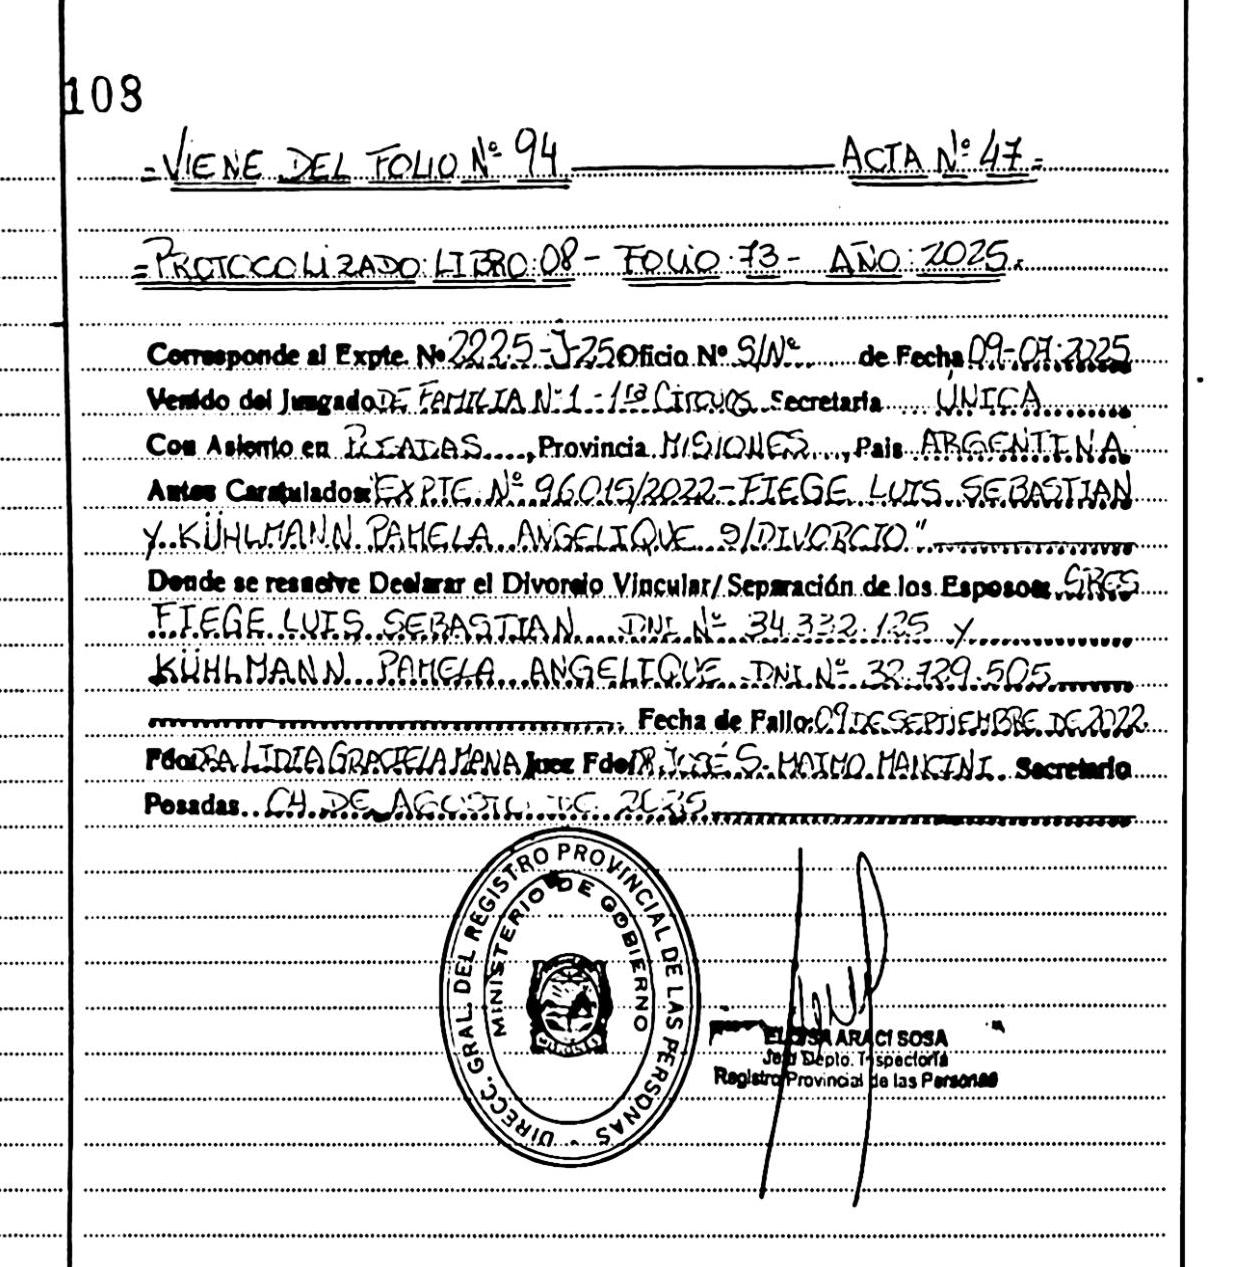 108
=VIENE DEL FOLIO Nº 94 ACTA Nº 47=
=PROTOCOLIZADO: LIBRO: 08 - FOLIO: 73 - AÑO: 2025.
Corresponde al Expte. Nº 2225-J-25 Oficio Nº S/Nº de Fecha 09-07-2025
Venido del Juzgado DE FAMILIA Nº 1 - 1ra Secretaria ÚNICA
Con Asiento en Provincia MISIONES, Pais ARGENTINA
Autos Caratulados: EXPTE. Nº 96015/2022-FIEGE LUIS SEBASTIAN
Y KÜHLMANN PAMELA ANGELIQUE S/DIVORCIO"
Donde se resuelve Declarar el Divorcio Vincular/Separación de los Esposos: SRES
FIEGE LUIS SEBASTIAN DNI Nº 34.332.125 Y
KÜHLMANN PAMELA ANGELIQUE DNI Nº 32.729.505
Fecha de Fallo: 09 DE SEPTIEMBRE DE 2022.
Fdo: DRA LIDIA GRACIELA MANA Juez Fdo: DR JOSÉ S. MAIMO MANCINI. Secretario
Posadas. 04 DE AGOSTO DE 2025
DIRECC. GRAL. DEL REGISTRO PROVINCIAL DE LAS PERSONAS
MINISTERIO DE GOBIERNO
ELOISA ARACI SOSA
Jefa Depto. Inspectoría
Registro Provincial de las Personas